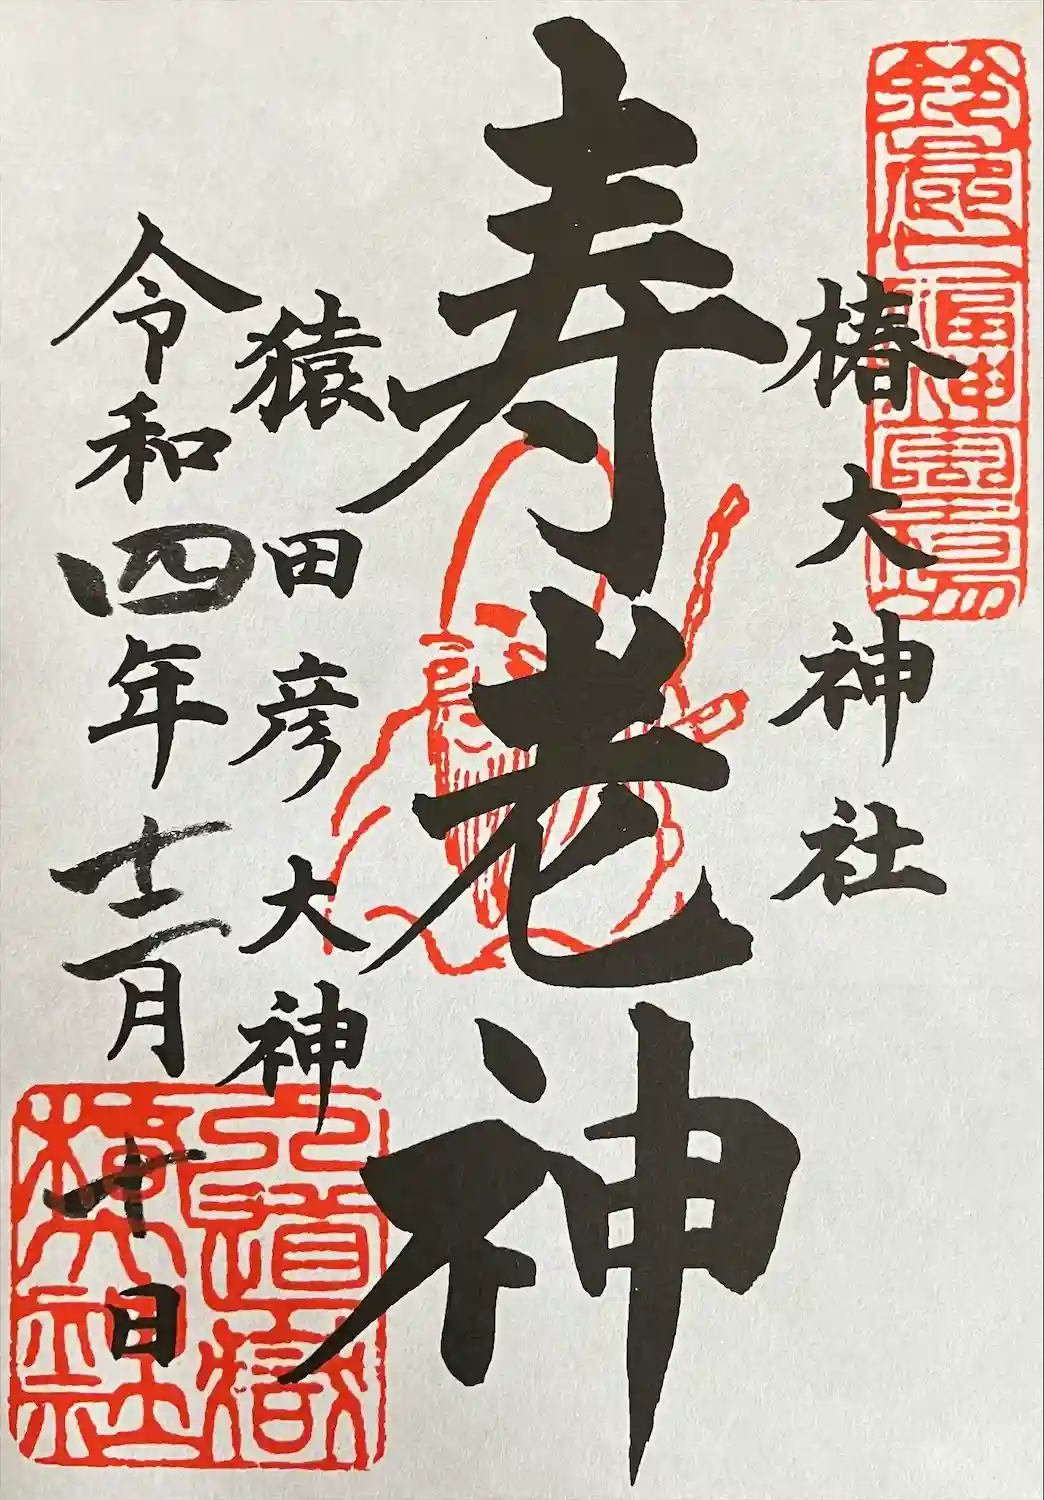 鈴鹿七福神霊場
椿大神社
寿老神
猿田彦大神
令和四年十二月十日
入道嶽
椿大神社